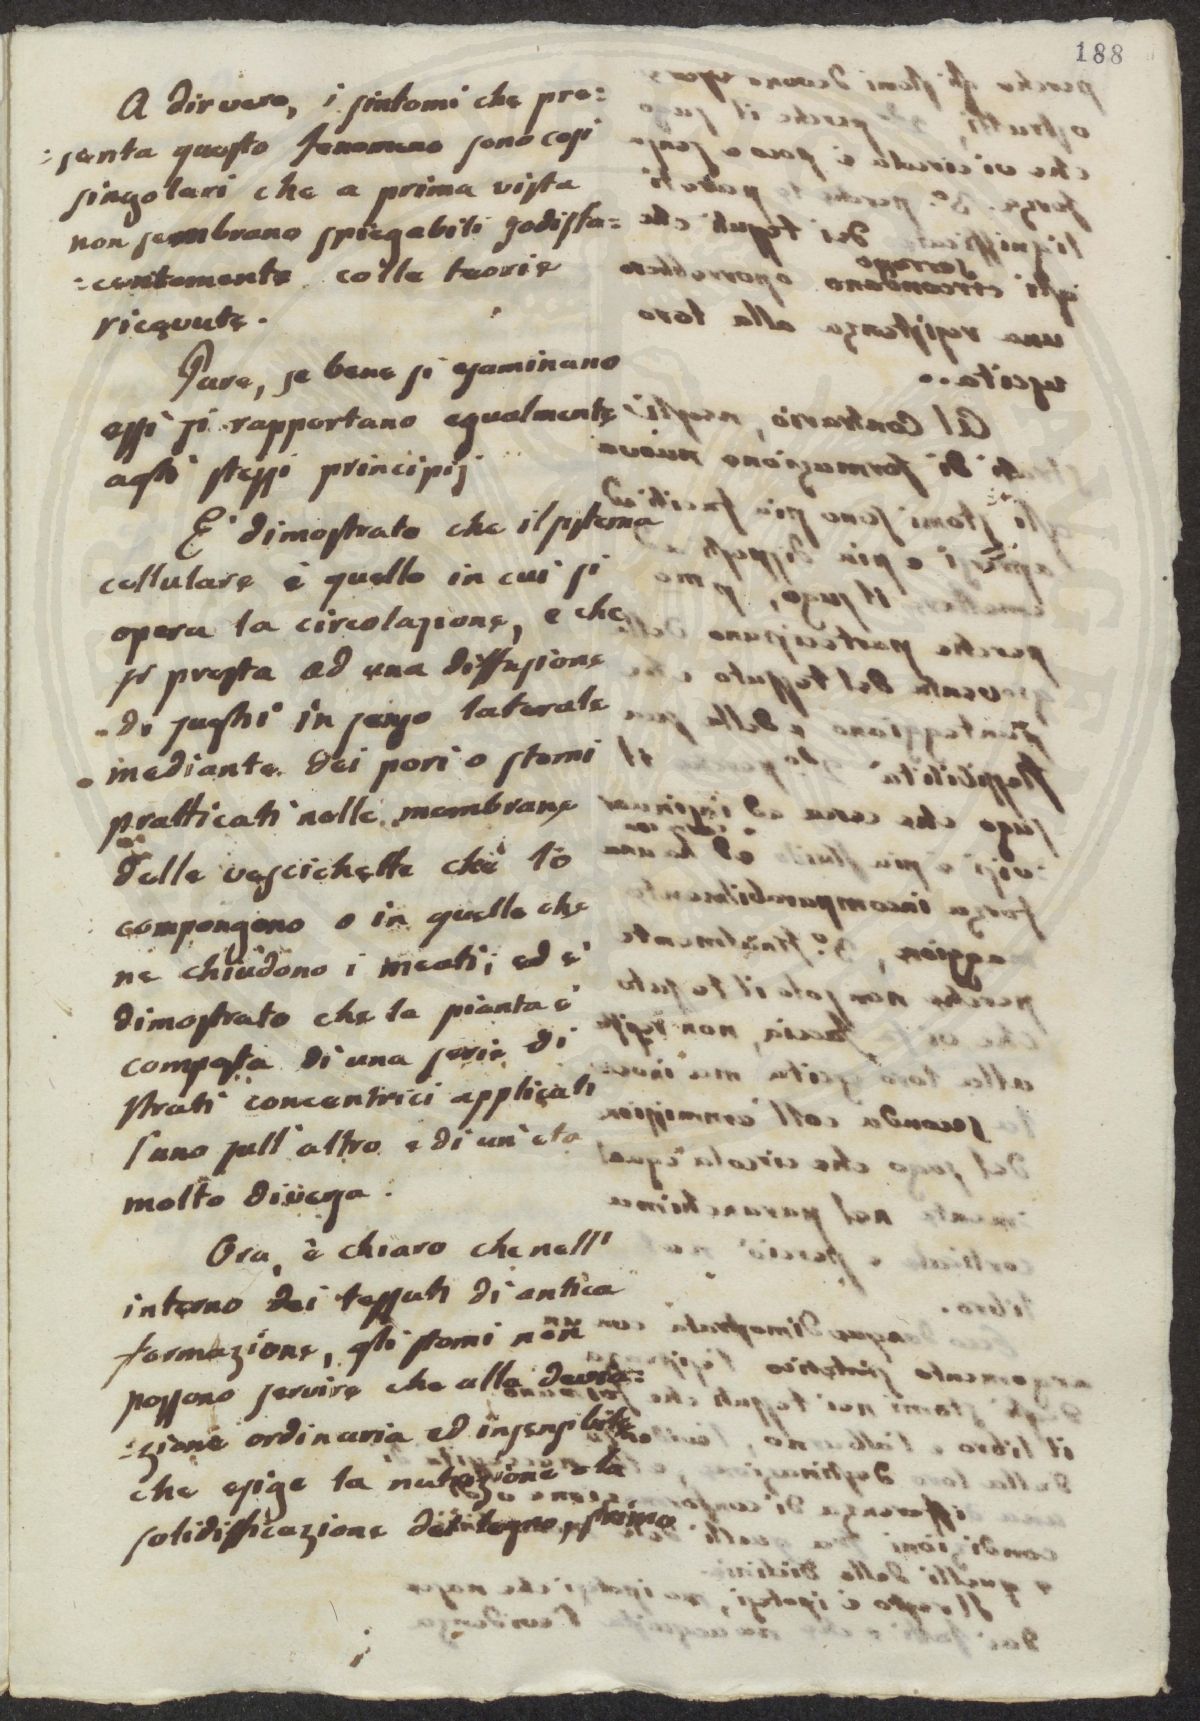 188
A dir vero, i sintomi che pre=
=senta questo fenomeno sono cosi
singolari che a prima vista
non sembrano spiegabili sodisfa=
=centemente colle teorie
ricevute.
Pure, se bene si esaminano
essi si rapportano egualmente
agli stessi principij
E' dimostrato che il sistema
cellulare è quello in cui si
opera la circolazione, e che
si presta ad una diffusione
di sughi in senso laterale
mediante dei pori o stomi
pratticati nelle membrane
delle vescichette che lo
compongono o in quelle che
ne chiudono i meati; ed è
dimostrato che la pianta è
composta di una serie di
strati concentrici applicati
l'uno sull'altro e di un'età
molto diversa.
Ora, è chiaro che nell'
interno dei tessuti di antica
formazione, gli stomi non
possono servire che alla devia=
=zione ordinaria ed insensibile
che esige la nutrizione e la
solidifficazione del legno,